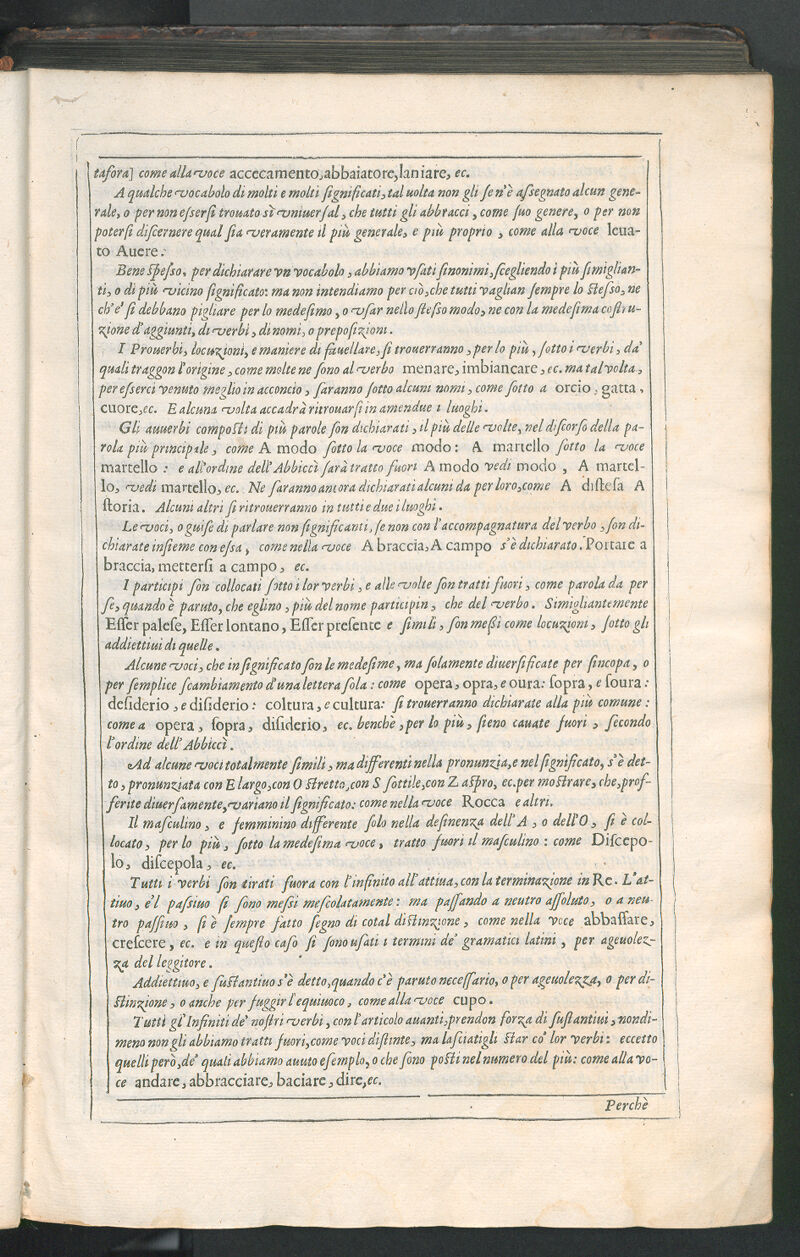 tafora] come alla voce accecamento, abbaiatore, laniare, ec.
A qualche vocabolo di molti e molti ſignificati, tal uolta non gli ſe n'è aſsegnato alcun gene-
rale, o per non eſserſi trouato sì vniuerſal, che tutti gli abbracci, come ſuo genere, o per non
poterſi diſcernere qual ſia veramente il più generale, e più proprio, come alla voce leua-
to Auere.
Bene ſpeſso, per dichiarare vn vocabolo, abbiamo vſati ſinonimi, ſcegliendo i più ſimiglian-
ti, o di più vicino ſignificato: ma non intendiamo per ciò, che tutti vaglian ſempre lo ſteſso, ne
ch'e' ſi debbano pigliare per lo medeſimo, o vſar nello ſteſso modo, ne con la medeſima coſtru-
zione d'aggiunti, di verbi, di nomi, o prepoſizioni.
I Prouerbi, locuzioni, e maniere di fauellare, ſi trouerranno, per lo più, ſotto i verbi, da'
quali traggon l'origine, come molte ne ſono al verbo menare, imbiancare, ec. ma tal volta,
per eſserci venuto meglio in acconcio, ſaranno ſotto alcuni nomi, come ſotto a orcio, gatta,
cuore, ec. E alcuna volta accadrà ritrouarſi in amendue i luoghi.
Gli auuerbi compoſti di più parole ſon dichiarati, il più delle volte, nel diſcorſo della pa-
rola più principale, come A modo ſotto la voce modo: A martello ſotto la voce
martello: e all'ordine dell'Abbiccì ſarà tratto fuori A modo vedi modo, A martel-
lo, vedi martello, ec. Ne ſaranno ancora dichiarati alcuni da per loro, come A diſteſa A
ſtoria. Alcuni altri ſi ritrouerranno in tutti e due i luoghi.
Le voci, o guiſe di parlare non ſignificanti, ſe non con l'accompagnatura del verbo, ſon di-
chiarate inſieme con eſsa, come nella voce A braccia, A campo s'è dichiarato. Portare a
braccia, metterſi a campo, ec.
I participi ſon collocati ſotto i lor verbi, e alle volte ſon tratti fuori, come parola da per
ſe, quando è paruto, che eglino, più del nome participin, che del verbo. Simigliantemente
Eſſer paleſe, Eſſer lontano, Eſſer preſente e ſimili, ſon meſsi come locuzioni, ſotto gli
addiettiui di quelle.
Alcune voci, che in ſignificato ſon le medeſime, ma ſolamente diuerſificate per ſincopa, o
per ſemplice ſcambiamento d'una lettera ſola: come opera, opra, e oura: ſopra, e ſoura:
deſiderio, e diſiderio: coltura, e cultura: ſi trouerranno dichiarate alla più comune:
come a opera, ſopra, diſiderio, ec. benchè, per lo più, ſieno cauate fuori, ſecondo
l'ordine dell'Abbiccì.
Ad alcune voci totalmente ſimili, ma differenti nella pronunzia, e nel ſignificato, s'è det-
to, pronunziata con E largo, con O ſtretto, con S ſottile, con Z aſpro, ec. per moſtrare, che, prof-
ferite diuerſamente, variano il ſignificato: come nella voce Rocca e altri.
Il maſculino, e femminino differente ſolo nella deſinenza dell'A, o dell'O, ſi è col-
locato, per lo più, ſotto la medeſima voce, tratto fuori il maſculino: come Diſcepo-
lo, diſcepola, ec.
Tutti i verbi ſon tirati fuora con l'infinito all'attiua, con la terminazione in Re. L'at-
tiuo, e'l paſsiuo ſi ſono meſsi meſcolatamente: ma paſſando a neutro aſſoluto, o a neu-
tro paſſiuo, ſi è ſempre fatto ſegno di cotal diſtinzione, come nella voce abbaſſare,
creſcere, ec. e in queſto caſo ſi ſono uſati i termini de' gramatici latini, per ageuolez-
za del leggitore.
Addiettiuo, e ſuſtantiuo s'è detto, quando c'è paruto neceſſario, o per ageuolezza, o per di-
ſtinzione, o anche per fuggir l'equiuoco, come alla voce cupo.
Tutti gl'Infiniti de' noſtri verbi, con l'articolo auanti, prendon forza di ſuſtantiui, nondi-
meno non gli abbiamo tratti fuori, come voci diſtinte, ma laſciatigli ſtar co' lor verbi: eccetto
quelli però, de' quali abbiamo auuto eſemplo, o che ſono poſti nel numero del più: come alla vo-
ce andare, abbracciare, baciare, dire, ec.
Perchè